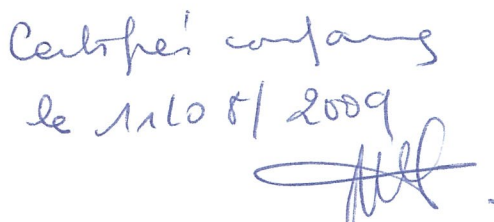 Certifiés conformes
le 11/08/2009